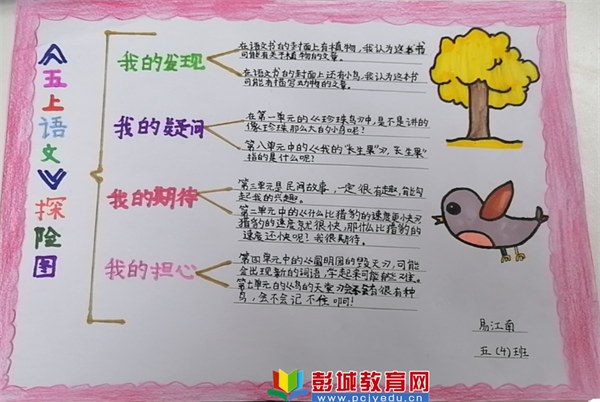 《五上语文》探险图
我的发现
在语文书的封面上有植物，我认为这本书
可能有关于植物的文章。
在语文书的封面上还有小鸟，我认为这本书
可能有描写动物的文章。
我的疑问
在第一单元的《珍珠鸟》中，是不是讲的
像珍珠那么大的小鸟呢？
第八单元中的《我的"长生果"》，"长生果"
指的是什么呢？
我的期待
第三单元是民间故事，一定很有趣，能勾
起我的兴趣。
第二单元中的《什么比猎豹的速度更快》
猎豹的速度就很快，那什么比猎豹的
速度还快呢？我很期待。
我的担心
第四单元中的《圆明园的毁灭》，可能
会出现新的词语，学起来可能有些
第七单元的《鸟的天堂》会有很有种
鸟，会不会记不住啊！
江南
五（4）班
彭城教育网
www.pcjyedu.cn